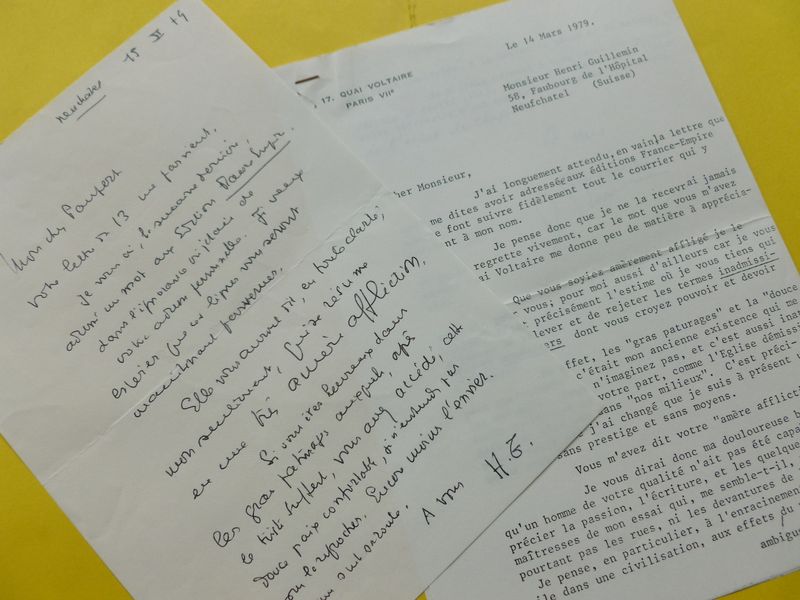 Neuchâtel
15 III 79
Mon cher
votre lettre du 13 me parvient.
Je vous ai, la semaine dernière,
adressé un mot aux Editions France-Empire
dans l'ignorance où j'étais de
votre adresse personnelle. Je veux
espérer que ces lignes vous seront
maintenant parvenues.
Elle vous auront dit, en toute clarté,
mon sentiment, qui se résume
en une très amère affliction.
Si vous êtes heureux dans
les gras paturages auxquels, après
le triste Suffert, vous avez accédé, cette
douce paix confortable, je n'entends pas
vous la reprocher. Encore moins l'envier.
A vous H.G.
17, QUAI VOLTAIRE
PARIS VIIe
Le 14 Mars 1979.
Monsieur Henri Guillemin
58, Faubourg de l'Hôpital
Neufchatel (Suisse)
her Monsieur,
J'ai longuement attendu, en vain, la lettre que
me dites avoir adressée aux éditions France-Empire
e font suivre fidèlement tout le courrier qui y
nt à mon nom.
Je pense donc que je ne la recevrai jamais
regrette vivement, car le mot que vous m'avez
ai Voltaire me donne peu de matière à apprécia-
Que vous soyiez amèrement affligé je le
vous; pour moi aussi d'ailleurs car je vous
précisément l'estime où je vous tiens qui
lever et de rejeter les termes inadmissi-
ers dont vous croyez pouvoir et devoir
ffet, les "gras paturages" et la "douce
c'était mon ancienne existence qui me
n'imaginez pas, et c'est aussi inat
votre part, comme l'Eglise démiss
ans "nos milieux". C'est préci-
j'ai changé que je suis à présent u
sans prestige et sans moyens.
Vous m'avez dit votre "amère afflicti
Je vous dirai donc ma douloureuse
qu'un homme de votre qualité n'ait pas été capa
précier la passion, l'écriture, et les quelque
maîtresses de mon essai qui, me semble-t-il,
pourtant pas les rues, ni les devantures de
Je pense, en particulier, à l'enracinement
ile dans une civilisation, aux effets du
ambigu